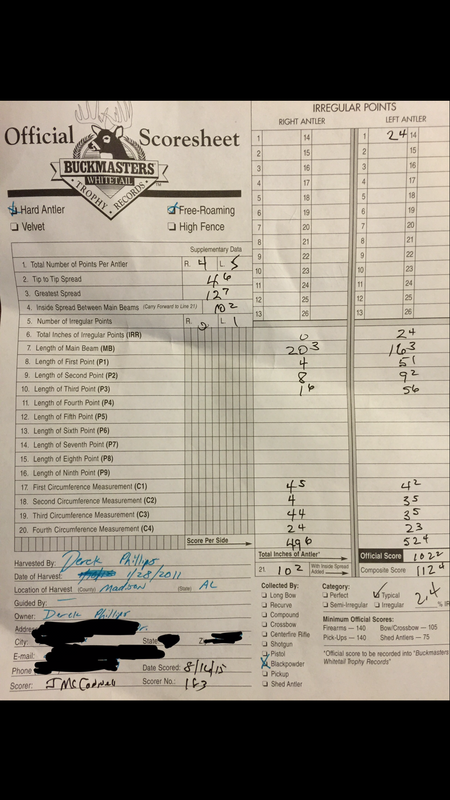 Official Scoresheet
BUCKMASTERS
WHITETAIL
TROPHY RECORDS
TM
Hard Antler
Free-Roaming
Velvet
High Fence
Supplementary Data
1. Total Number of Points Per Antler R. 4 L. 5
2. Tip to Tip Spread 4 6
3. Greatest Spread 12 7
4. Inside Spread Between Main Beams (Carry Forward to Line 21) 10 2
5. Number of Irregular Points R. 0 L. 1
IRREGULAR POINTS
RIGHT ANTLER LEFT ANTLER
1 14 1 2 4 14
2 15 2 15
3 16 3 16
4 17 4 17
5 18 5 18
6 19 6 19
7 20 7 20
8 21 8 21
9 22 9 22
10 23 10 23
11 24 11 24
12 25 12 25
13 26 13 26
6. Total Inches of Irregular Points (IRR) 0 2 4
7. Length of Main Beam (MB) 20 3 16 3
8. Length of First Point (P1) 4 5 1
9. Length of Second Point (P2) 8 9 2
10. Length of Third Point (P3) 1 6 5 6
11. Length of Fourth Point (P4)
12. Length of Fifth Point (P5)
13. Length of Sixth Point (P6)
14. Length of Seventh Point (P7)
15. Length of Eighth Point (P8)
16. Length of Ninth Point (P9)
17. First Circumference Measurement (C1) 4 5 4 2
18. Second Circumference Measurement (C2) 4 3 5
19. Third Circumference Measurement (C3) 4 4 3 5
20. Fourth Circumference Measurement (C4) 2 4 2 3
Score Per Side 49 6 52 4
Total Inches of Antler* Official Score 102 2
21. 10 2 With Inside Spread Added Composite Score 112 4
Harvested By: Derek Phillips
Date of Harvest: 1/28/2011
Location of Harvest (County) Madison (State) AL
Guided By: —
Owner: Derek Phillips
Addre
City: State Z
E-mail:
Phone Date Scored: 8/16/15
Scorer: J McConnell Scorer No.: 183
Collected By:
Long Bow
Recurve
Compound
Crossbow
Centerfire Rifle
Shotgun
Pistol
Blackpowder
Pickup
Shed Antler
Category:
Perfect Typical
Semi-Irregular Irregular 2.4 % IR
Minimum Official Scores:
Firearms — 140 Bow/Crossbow — 105
Pick-Ups — 140 Shed Antlers — 75
*Official score to be recorded into "Buckmasters
Whitetail Trophy Records"